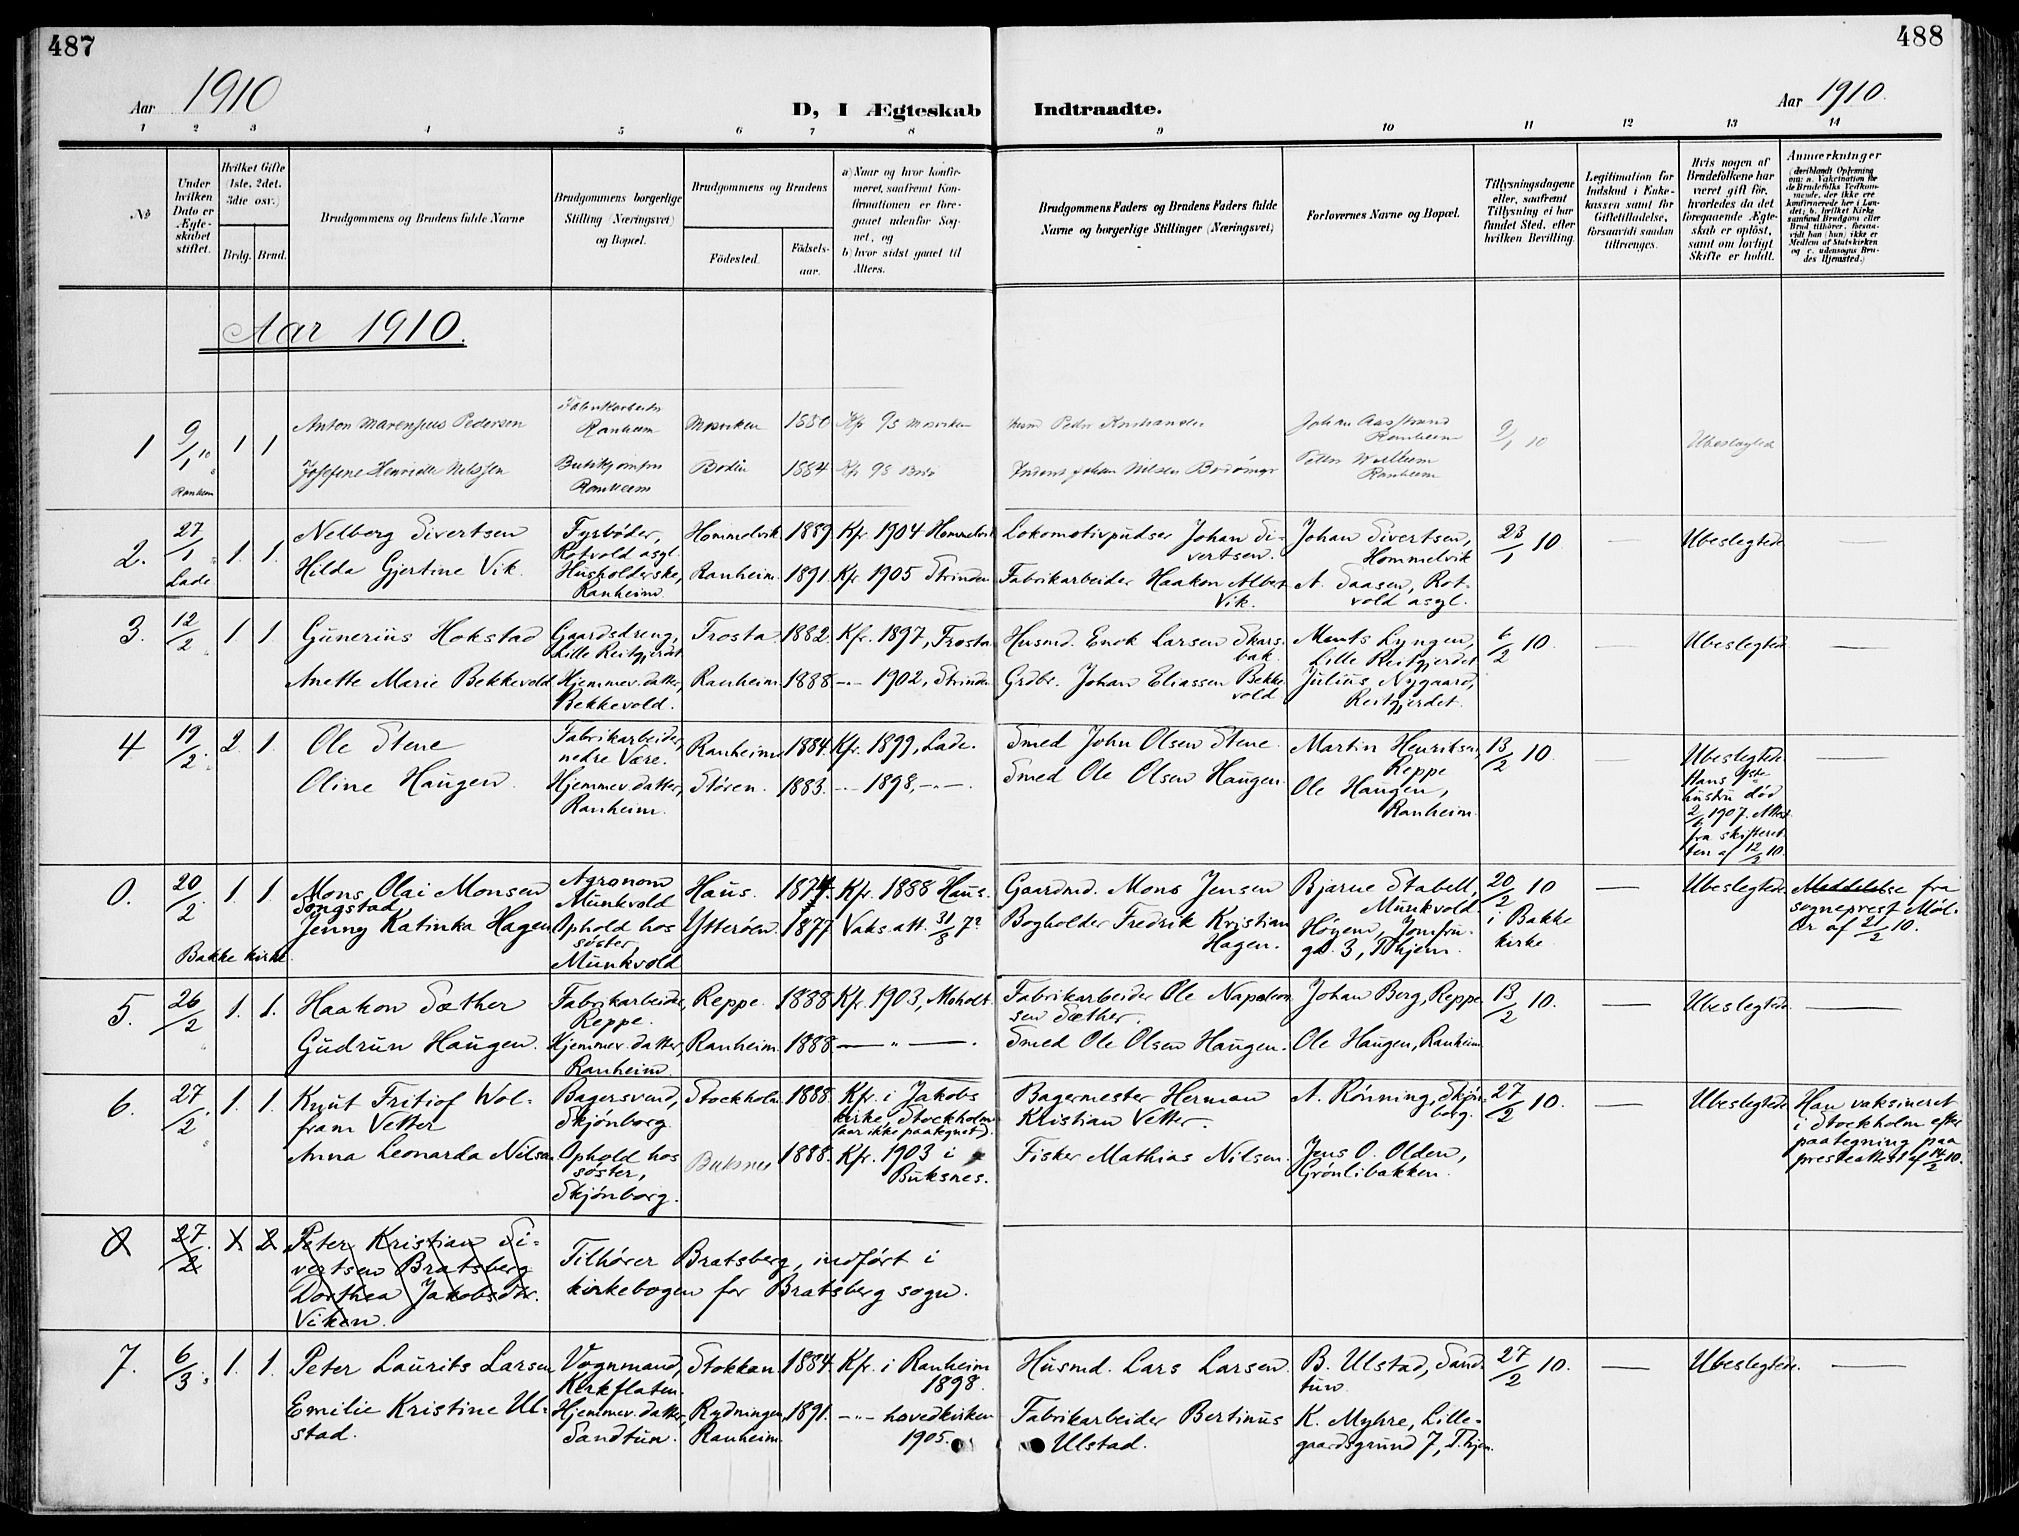 487
488
Aar 1910
D, I Ægteskab Indtraadte.
Aar 1910.
1 2 3 4 5 6 7 8 9 10 11 12 13 14
No
Under hvilken Dato er Ægteskabet stiftet.
Hvilket Gifte (1ste, 2det, 3die osv.)
Brdg. Brud.
Brudgommens og Brudens fulde Navne
Brudgommens borgerlige Stilling (Næringsvei) og Bopæl.
Brudgommens og Brudens
Fødested.
Fødselsaar.
a) Naar og hvor konfirmeret, saafremt Konfirmationen er foregaaet udenfor Sognet, og
b) hvor sidst gaaet til Alters.
Brudgommens Faders og Brudens Faders fulde Navne og borgerlige Stillinger (Næringsvei)
Forlovernes Navne og Bopæl.
Tillysningsdagene eller, saafremt Tillysning ei har fundet Sted, efter hvilken Bevilling.
Legitimation for Indskud i Enkekassen samt for Giftetilladelse, forsaavidt saadan tiltrænges.
Hvis nogen af Brudefolkene har været gift før, hvorledes da det foregaaende Ægteskab er opløst, samt om lovligt Skifte er holdt.
Anmærkninger
Aar 1910.
1 9/1 10 Ranheim 1 1
Anton Marensius Pedersen Fabrikarbeider Ranheim Mosviken 1880 Kfr 95 Mosviken
Josefine Henriette Nilssen Ranheim Bodin 1884 Kfr 98 Bodø
Husmd Peder Kristiansen
Johan Aasstrand Ranheim
Johan Nilsen
Petter Ranheim
9/1 10 Ubeslegtede
2. 27/1 Lade 1. 1.
Nelberg Sivertsen Fyrbøder, Rotvold asyl. Hommelvik 1889 Kfr. 1904 Hommelvik
Hilda Gjertine Vik. Husholderske, Ranheim. Ranheim. 1891. Kfr 1905 Strinden
Lokomotivpudser Johan Sivertsen.
Johan Sivertsen, Hommelvik
Fabrikarbeider Haakon Albert Vik.
A. Saasen, Rotvold asyl.
23/1 10. — Ubeslegtede —
3. 12/2 1 1
Gunerius Hokstad Gaardsdreng, Lille Reitgjerdet Frosta. 1882. Kfr. 1897, Frosta
Anette Marie Bekkevold Hjemmev. datter, Bekkevold. Ranheim. 1888 -"- 1902, Strinden
Husmd. Enok Larsen Skarsbak.
Ments Lyngen, Lille Reitgjerdet
Grdbr. Johan Eliassen Bekkevold
Julius Nygaard, Reitgjerdet.
6/2 10. — Ubeslegtede —
4 19/2. 2. 1.
Ole Stene Fabrikarbeider, nedre Være. Ranheim 1884. Kfr. 1899, Lade.
Oline Haugen. Hjemmev. datter, Ranheim. Støren. 1883. -"- 1898, -"-.
Smed John Olsen Stene.
Martin Henriksen, Reppe
Smed Ole Olsen Haugen.
Ole Haugen, Ranheim.
13/2 10. —
Ubeslegtede
Hans 1ste
hustru død
2/6 1907. Attest
fra skifteret
ten af 12/2 10.
—
0. 20/2. 1. 1
Bakke kirke.
Mons Olai Monsen Songstad Agronom Munkvold Haus. 1874. Kfr. 1888 Haus.
Jenny Katinka Hagen Ophold hos søster, Munkvold Ytterøen. 1877 Vaks.att. 31/8 7?
Gaardmd. Mons Jensen
Bjarne Stabell, Munkvold.
Bogholder Fredrik Kristian Hagen.
Høyem, Jomfrugd. 3, Thjem.
20/2 10 i Bakke kirke. — Ubeslegtede.
Meddelelse fra
sogneprest Møller af 21/2 10.
5. 26/2 1. 1.
Haakon Sæther Fabrikarbeider, Reppe. Reppe. 1888 Kfr. 1903, Moholt.
Gudrun Haugen. Hjemmev. datter, Ranheim. Ranheim. 1888 — " —.
Fabrikarbeider Ole Napoleonsen Sæther.
Johan Berg, Reppe.
Smed Ole Olsen Haugen.
Ole Haugen, Ranheim
13/2 10. — Ubeslegtede. —
6. 27/2. 1. 1.
Knut Fritiof Wolfram Vetter Bagersvend, Skjønborg. Stockholm 1888. Kfr. i Jakobs kirke, Stockholm (aar ikke paategnet).
Anna Leonarda Nilsen Ophold hos søster, Skjønborg. Buksnes 1888. Kfr. 1903 i Buksnes.
Bagermester Herman Kristian Vetter.
A. Rønning, Skjønborg.
Fisker Mathias Nilsen.
Jens O. Olden, Grønlibakken.
27/2 10. — Ubeslegtede
Han vaksineret
i Stockholm efter
paategning paa
presteattest af 14/2 10.
8 27/2. 1 2
Peter Kristian Sivertsen Bratsberg
Dorthea Jakobsdtr. Viken.
Tilhører Bratsberg, indført i
kirkebogen for Bratsberg sogn.
7. 6/3. 1. 1.
Peter Laurits Larsen Vognmand, Kirkflaten. Stokkan. 1884. Kfr. i Ranheim 1898.
Emilie Kristine Ulstad. Hjemmev. datter, Sandtun. Rydningen, Ranheim. 1891. -"- hovedkirken 1905.
Husmd. Lars Larsen.
B. Ulstad, Sandtun.
Fabrikarbeider Bertinus Ulstad.
K. Myhre, Lillegaardsgrund 7, T.hjem.
27/2 10. — Ubeslegtede. —